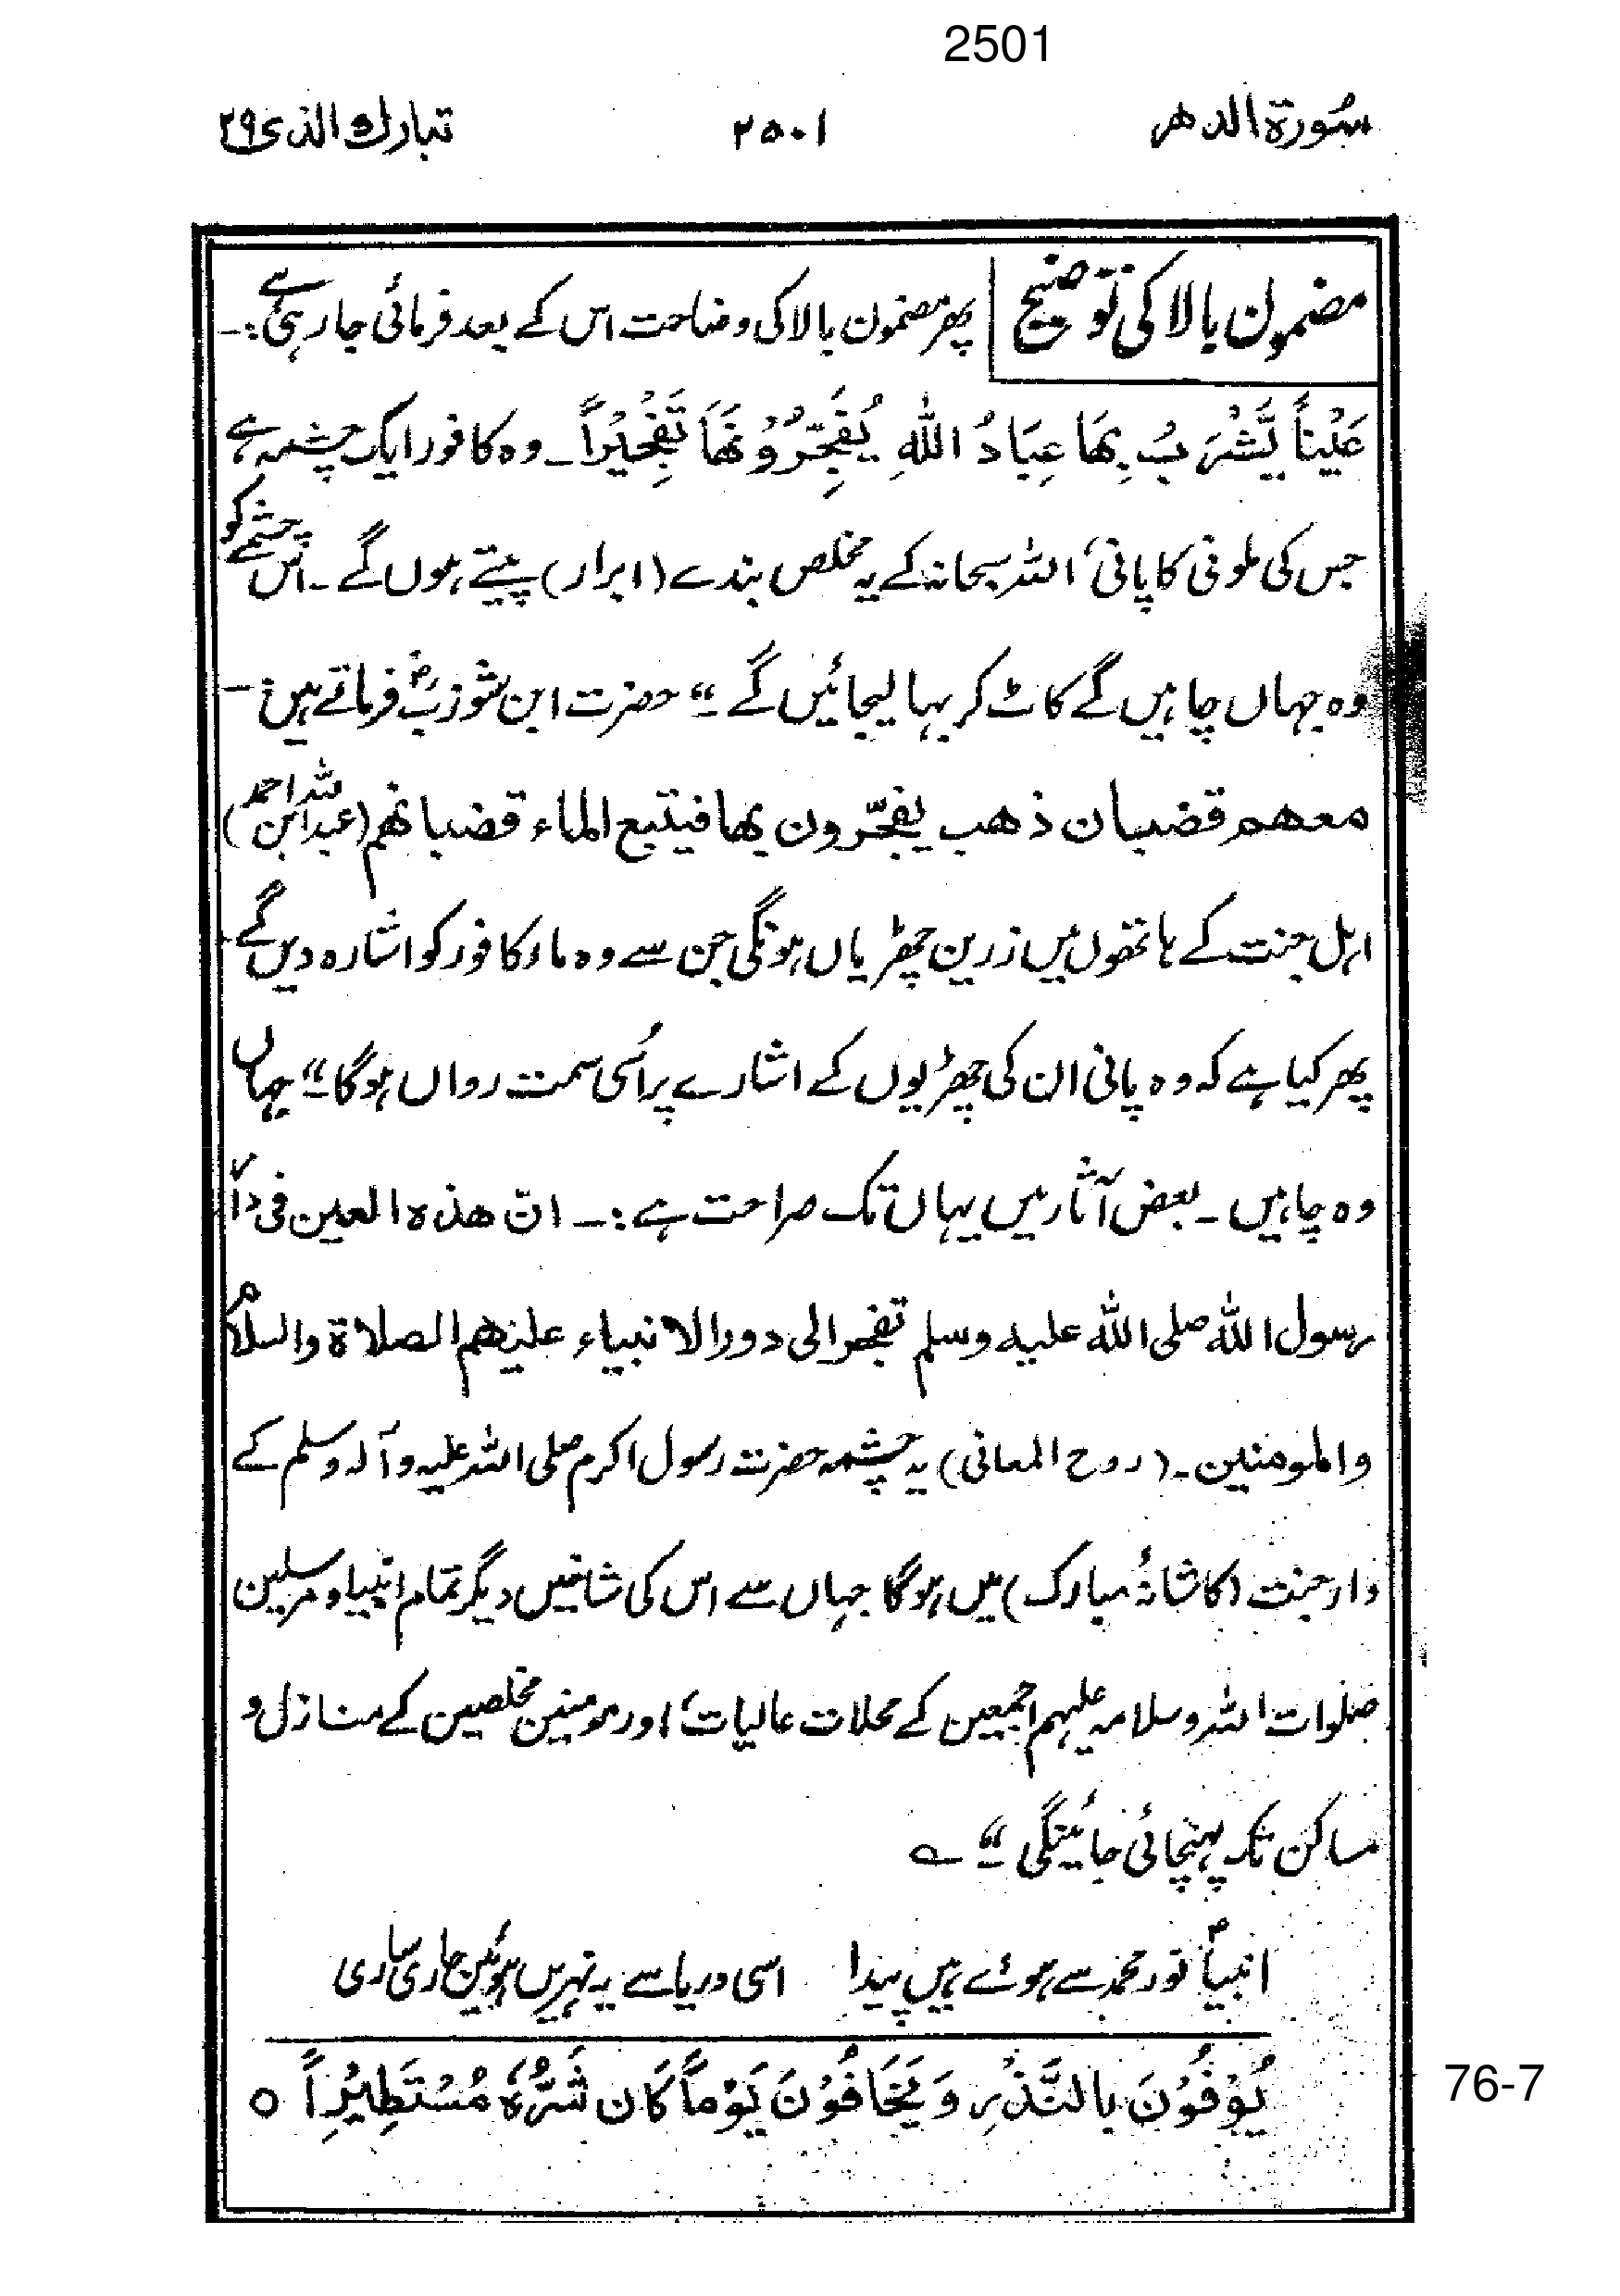 2501
سُورة الدهر ٢٥٠١ تبارك الذی ٢٩
مضمون بالا کی توضیح پھر مضمون بالا کی وضاحت اس کے بعد فرمائی جا رہی ہے :۔
عَيْناً يَّشْرَبُ بِهَا عِبَادُ اللّٰهِ يُفَجِّرُوْنَهَا تَفْجِيْراً ۔ وہ کافور ایک چشمہ ہے
جس کی ملونی کا پانی، اللہ سبحانہ کے یہ مخلص بندے (ابرار) پیتے ہوں گے ۔ اس چشمے کو
وہ جہاں چاہیں گے کاٹ کر بہا لیجائیں گے ۔“ حضرت ابن شوزبؒ فرماتے ہیں :۔
معهم قضبان ذهب يفجّرون بها فيتبع الماء قضبانهم (عبد اللہ ابن احمد)
اہل جنت کے ہاتھوں میں زرین چھڑیاں ہونگی جن سے وہ ماء کافور کو اشارہ دیں گے
پھر کیا ہے کہ وہ پانی ان کی چھڑیوں کے اشارے پر اُسی سمت رواں ہوگا ۔“ جہاں
وہ چاہیں ۔ بعض آثار میں یہاں تک صراحت ہے :۔ انّ هذه العين فی دار
رسول اللّٰه صلی اللّٰه علیه وسلم تفجر الی دور الانبیاء علیهم الصلاة والسلام
والمومنین ۔ (روح المعانی) یہ چشمہ حضرت رسول اکرم صلی اللہ علیہ وآلہ وسلم کے
دار جنت (کاشانۂ مبارک) میں ہوگا جہاں سے اس کی شاخیں دیگر تمام انبیا و مرسلین
صلوات اللہ وسلامہ علیہم اجمعین کے محلات عالیات، اور مومنین مخلصین کے منازل و
مساکن تک پہنچائی جائینگی ۔“ ؎
انبیاؑ نور محمدؐ سے ہوئے ہیں پیدا اسی دریا سے یہ نہریں ہوئیں جاری ساری
يُوْفُوْنَ بِالنَّذْرِ وَيَخَافُوْنَ يَوْماً كَانَ شَرُّهٗ مُسْتَطِيْراً ○
76-7